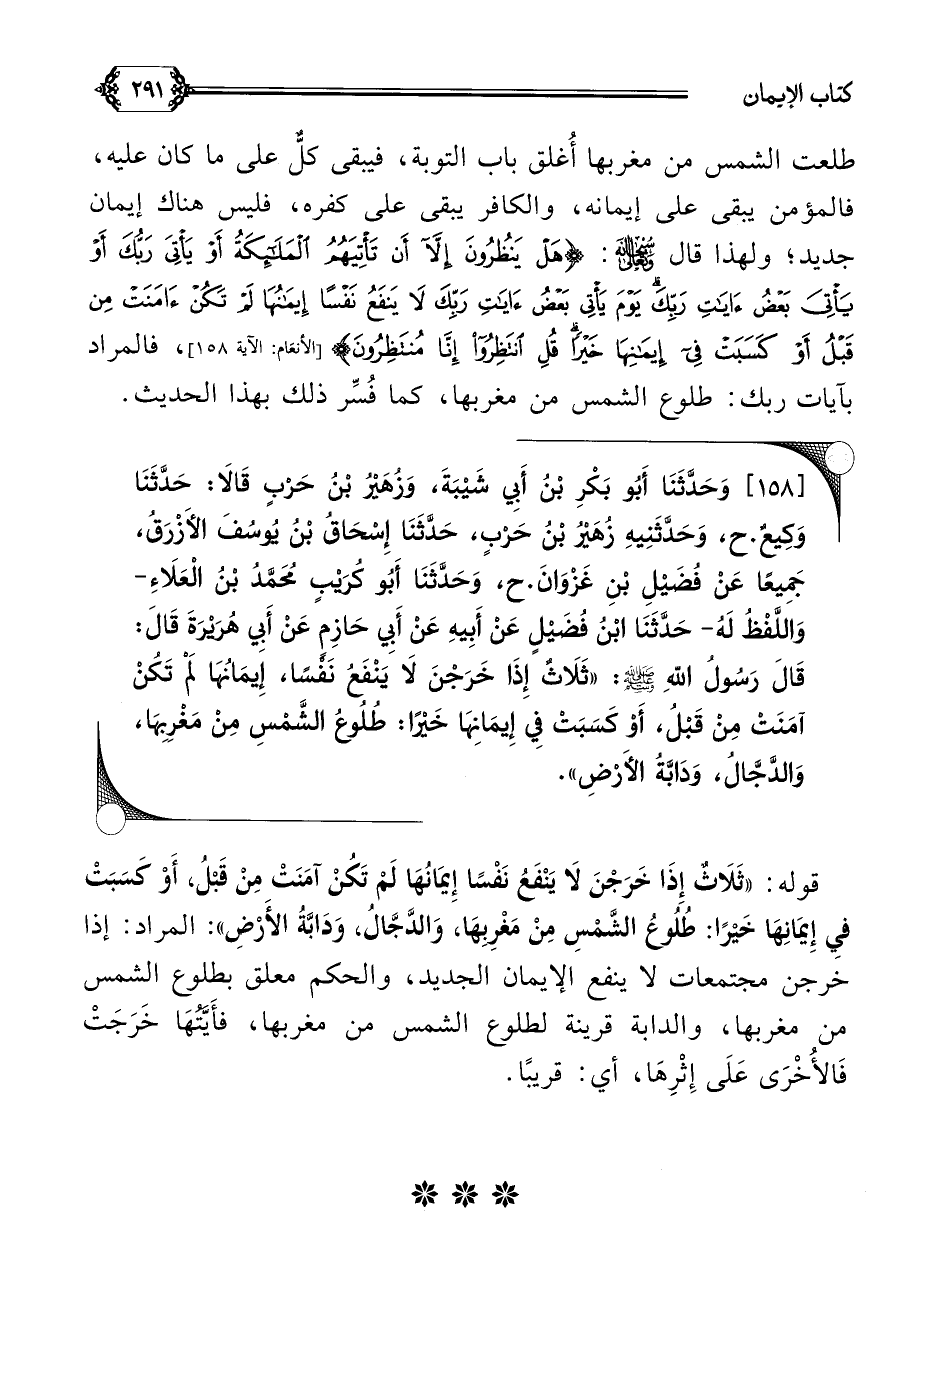 كتاب الإيمان
٢٩١
طلعت الشمس من مغربها أُغلق باب التوبة، فيبقى كلٌّ على ما كان عليه،
فالمؤمن يبقى على إيمانه، والكافر يبقى على كفره، فليس هناك إيمان
جديد؛ ولهذا قال ﷾: ﴿هَلْ يَنظُرُونَ إِلَّآ أَن تَأْتِيَهُمُ ٱلْمَلَٰٓئِكَةُ أَوْ يَأْتِىَ رَبُّكَ أَوْ
يَأْتِىَ بَعْضُ ءَايَٰتِ رَبِّكَۗ يَوْمَ يَأْتِى بَعْضُ ءَايَٰتِ رَبِّكَ لَا يَنفَعُ نَفْسًا إِيمَٰنُهَا لَمْ تَكُنْ ءَامَنَتْ مِن
قَبْلُ أَوْ كَسَبَتْ فِىٓ إِيمَٰنِهَا خَيْرًاۗ قُلِ ٱنتَظِرُوٓا۟ إِنَّا مُنتَظِرُونَ﴾ [الأنعَام: الآية ١٥٨]، فالمراد
بآيات ربك: طلوع الشمس من مغربها، كما فُسِّر ذلك بهذا الحديث.
[١٥٨] وَحَدَّثَنَا أَبُو بَكْرِ بْنُ أَبِي شَيْبَةَ، وَزُهَيْرُ بْنُ حَرْبٍ قَالَا: حَدَّثَنَا
وَكِيعٌ.ح، وَحَدَّثَنِيهِ زُهَيْرُ بْنُ حَرْبٍ، حَدَّثَنَا إِسْحَاقُ بْنُ يُوسُفَ الأَزْرَقُ،
جَمِيعًا عَنْ فُضَيْلِ بْنِ غَزْوَانَ.ح، وَحَدَّثَنَا أَبُو كُرَيْبٍ مُحَمَّدُ بْنُ الْعَلَاءِ-
وَاللَّفْظُ لَهُ- حَدَّثَنَا ابْنُ فُضَيْلٍ عَنْ أَبِيهِ عَنْ أَبِي حَازِمٍ عَنْ أَبِي هُرَيْرَةَ قَالَ:
قَالَ رَسُولُ اللهِ ﷺ: «ثَلَاثٌ إِذَا خَرَجْنَ لَا يَنْفَعُ نَفْسًا، إِيمَانُهَا لَمْ تَكُنْ
آمَنَتْ مِنْ قَبْلُ، أَوْ كَسَبَتْ فِي إِيمَانِهَا خَيْرًا: طُلُوعُ الشَّمْسِ مِنْ مَغْرِبِهَا،
وَالدَّجَّالُ، وَدَابَّةُ الأَرْضِ».
قوله: «ثَلَاثٌ إِذَا خَرَجْنَ لَا يَنْفَعُ نَفْسًا إِيمَانُهَا لَمْ تَكُنْ آمَنَتْ مِنْ قَبْلُ، أَوْ كَسَبَتْ
فِي إِيمَانِهَا خَيْرًا: طُلُوعُ الشَّمْسِ مِنْ مَغْرِبِهَا، وَالدَّجَّالُ، وَدَابَّةُ الأَرْضِ»: المراد: إذا
خرجن مجتمعات لا ينفع الإيمان الجديد، والحكم معلق بطلوع الشمس
من مغربها، والدابة قرينة لطلوع الشمس من مغربها، فأَيَّتُهَا خَرَجَتْ
فَالأُخْرَى عَلَى إِثْرِهَا، أي: قريبًا.